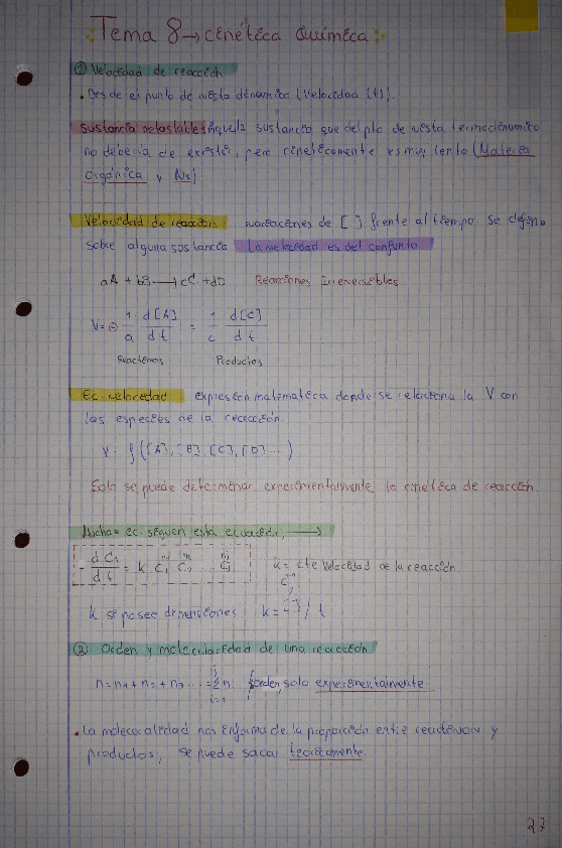 Tema 8 → cinética Química
① Velocidad de reacción
• Desde el punto de vista dinámico (Velocidad (t)).
Sustancia metastable: Aquella sustancia que del pto de vista termodinámico
no debería de existir, pero cinéticamente es muy lento (Materia
orgánica y N₂)
Velocidad de reacción variaciones de [ ] frente al tiempo se define
sobre alguna sustancia La velocidad es del conjunto
aA + bB → cC + dD Reacciones Irreversibles
V = ⊖ 1/a d[A]/dt = 1/c d[C]/dt
Reactivos Productos
Ec. velocidad expresión matemática donde se relaciona la V con
las especies de la reacción.
V = f([A], [B], [C], [D]...)
Solo se puede determinar experimentalmente la cinética de reacción
Muchas ec. siguen esta ecuación, →
- dC₁/dt = k C₁ C₂ ... Cj k = cte velocidad de la reacción
k si posee dimensiones k =
② Orden y molecularidad de una reacción
n = n₁ + n₂ + n₃... = Σ nᵢ orden, solo experimentalmente
• La molecularidad nos informa de la proporción entre reactivos y
productos, se puede sacar teóricamente.
27